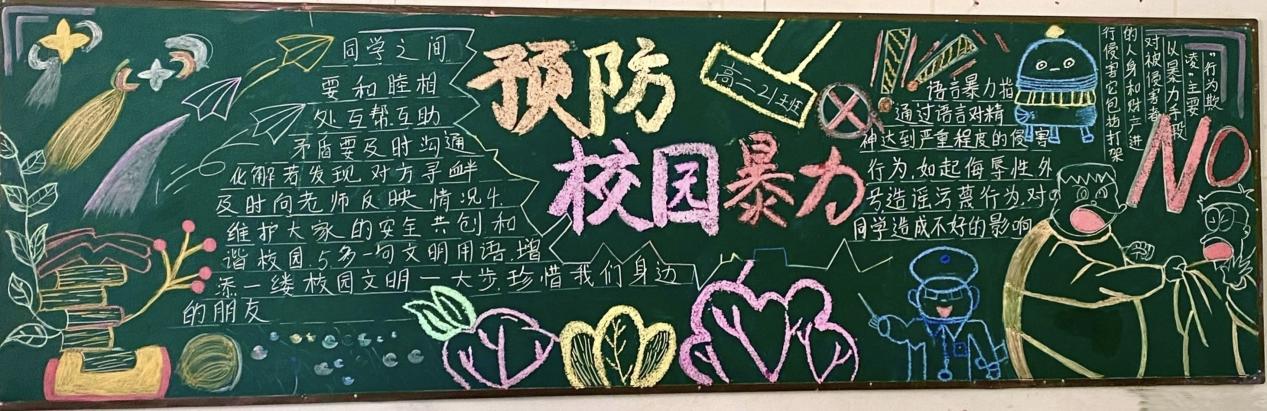 同学之间
要和睦相
处互帮互助
矛盾要及时沟通
化解若发现对方寻衅
及时向老师反映情况4.
维护大家的安全共创和
谐校园.5多一句文明用语.增
添一缕校园文明一大步珍惜我们身边
的朋友
预防
校园暴力
高二.21班
语言暴力指
通过语言对精
神达到严重程度的侵害
行为,如起侮辱性外
号造谣污蔑行为,对
同学造成不好的影响
"行为欺
凌"主要
以暴力手段
对被侵害者
的人身和财产进
行侵害它包括打架
NO